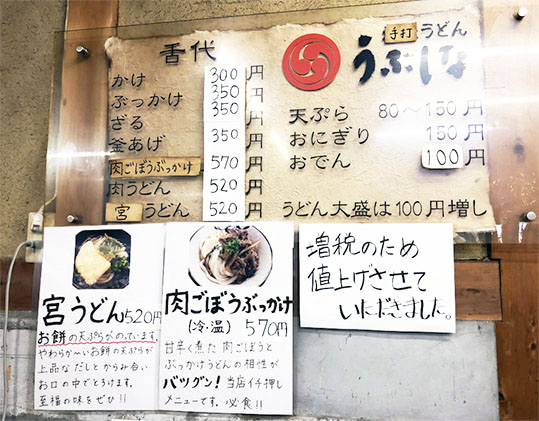 舌代
かけ 300円
ぶっかけ 350円
ざる 350
釜あげ 350円
肉ごぼうぶっかけ 570円
肉うどん 520円
宮うどん 520円
手打うどん
うぶしな
天ぷら 80〜150円
おにぎり 150円
おでん 100円
うどん大盛は100円増し
宮うどん520円
お餅の天ぷらがのっています。
やわらか〜いお餅の天ぷらが
上品なだしとからみ合い
お口の中でとろけます。
至福の味をぜひ!!
肉ごぼうぶっかけ
(冷・温) 570円
甘辛く煮た肉ごぼうと
ぶっかけうどんの相性が
バツグン!当店イチ押し
メニューです。必食!!
増税のため
値上げさせて
いただきました。